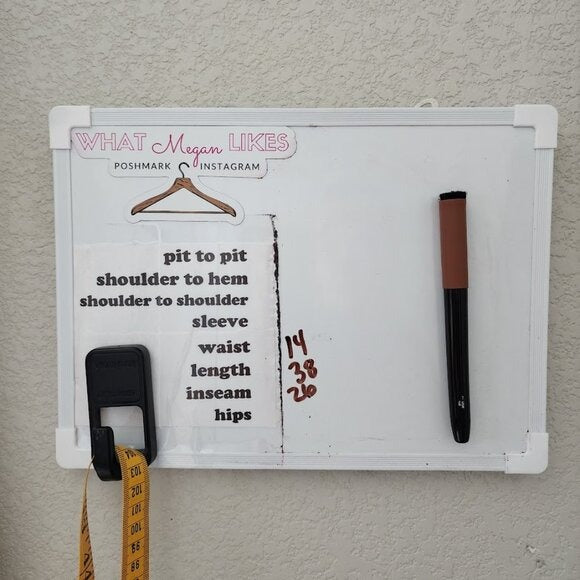 WHAT Megan LIKES
POSHMARK INSTAGRAM
pit to pit
shoulder to hem
shoulder to shoulder
sleeve
waist 14
length 38
inseam 26
hips
103
102
101
100
99
98